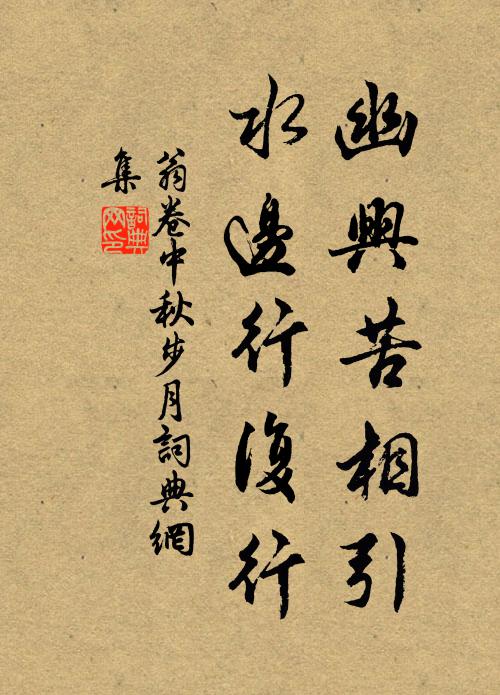 幽興苦相引
水邊行復行
翁卷中秋步月詞典網
集
詞典
网印